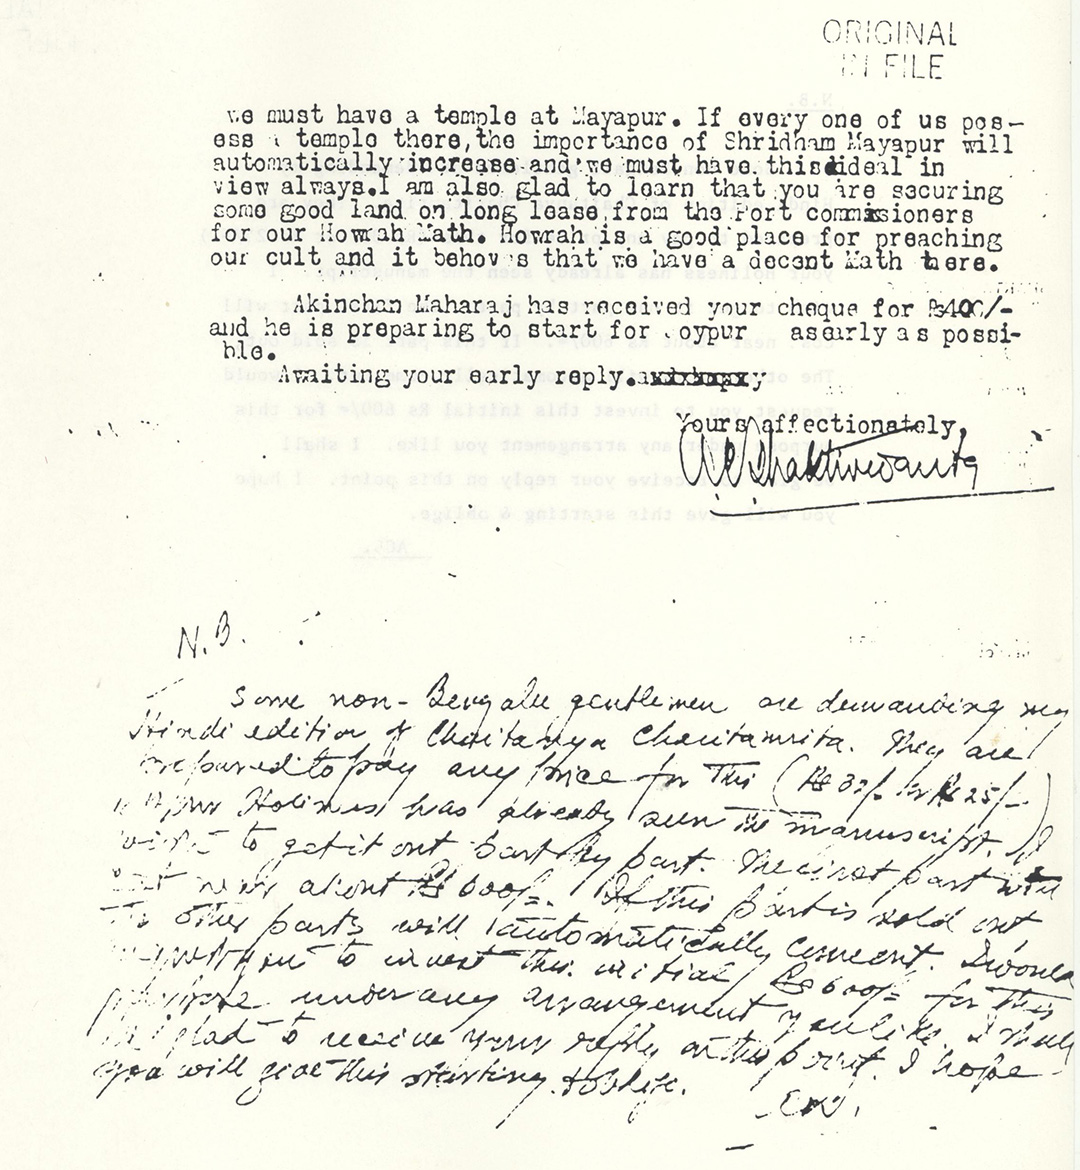 ORIGINAL
IN FILE
we must have a temple at Mayapur. If every one of us pos-
ess a temple there,the importance of Shridham Mayapur will
automatically increase and we must have this ideal in
view always.I am also glad to learn that you are securing
some good land on long lease from the Port commissioners
for our Howrah Math. Howrah is a good place for preaching
our cult and it behoves that we have a decent Math there.
Akinchan Maharaj has received your cheque for Rs400/-
and he is preparing to start for oypur asearly as possi-
ble.
Awaiting your early reply.
Yours affectionately,
A.C. Bhaktivedanta
N.B.
Some non-Bengalee gentlemen are demanding my
Hindi edition of Chaitanya Charitamrita. They are
prepared to pay any price for this (Rs 32/- or Rs 25/-)
your Holiness has already seen the manuscript. I
wish to get it out part by part. The first part will
cost near about Rs 600/=. If this part is sold out
the other parts will automatically come out. I would
request you to invest this initial Rs 600/= for this
purpose under any arrangement you like. I shall
be glad to receive your reply on this point. I hope
you will give this starting & oblige.